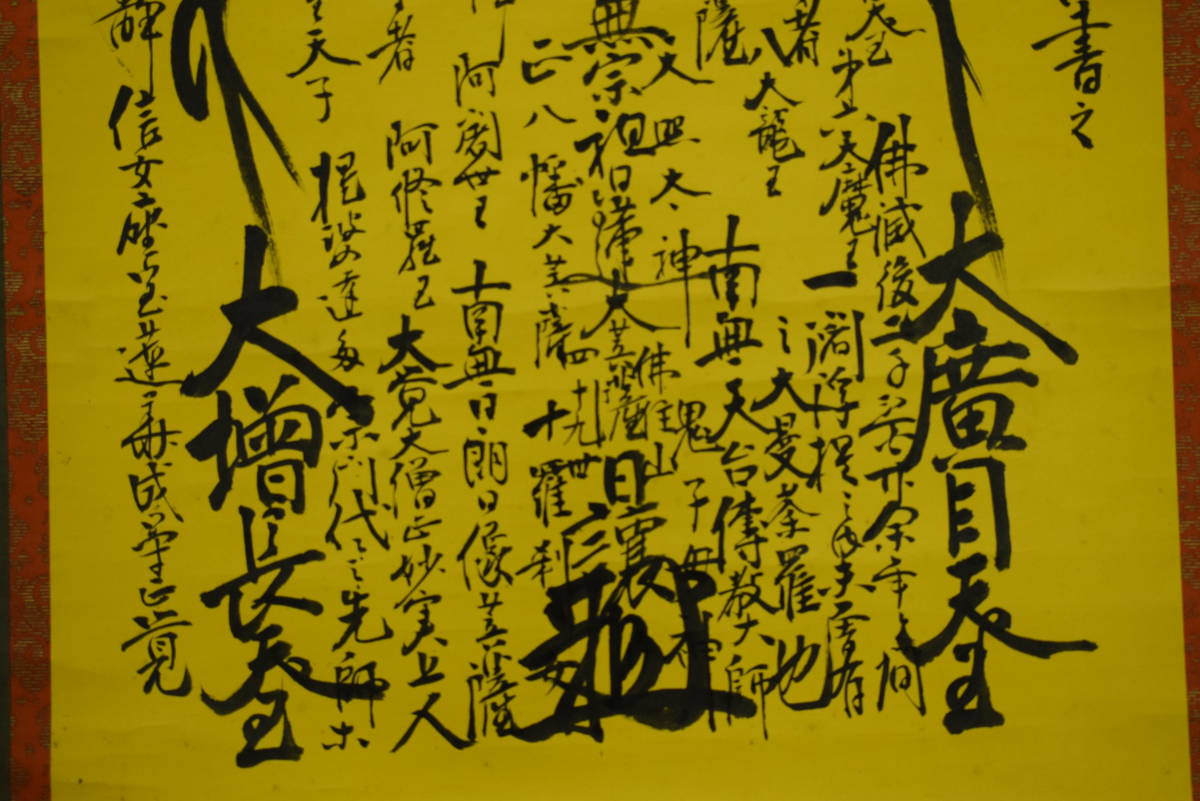 書之
大廣目天王
佛滅後二千二百廿余年之間
第六天魔王
一閻浮提之内未曾有
之大曼荼羅也
者
八大龍王
薩
南無天台傳教大師
鬼子母神
天照太神
無宗祖日蓮大菩薩
佛種山
四十九世
正八幡大菩薩
十羅刹女
阿闍世王
南無日朗日像菩薩
者
阿修羅王
大覚大僧正妙実上人
王天子
提婆達多
宗門代々先師ホ
大増長天王
靜信女 成等正覚